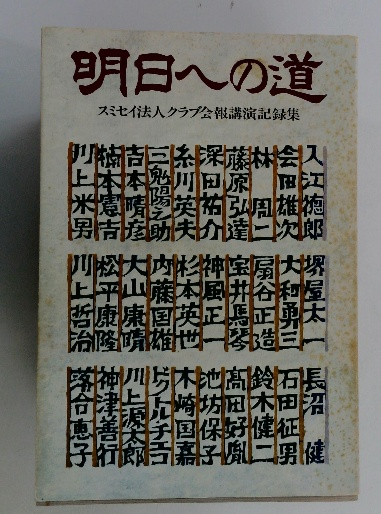 明日への道
スミセイ法人クラブ会報講演記録集
入江徳郎
会田雄次
林周二
藤原弘達
深田祐介
糸川英夫
三鬼陽之助
吉本晴彦
楠本憲吉
川上米男
堺屋太一
大和勇三
扇谷正造
宝井馬琴
神風正一
杉本英世
内藤国雄
大山康晴
松平康隆
川上哲治
長沼健
石田征男
鈴木健二
高田好胤
池坊保子
木崎国嘉
ドクトルチエコ
川上源太郎
神津善行
落合恵子